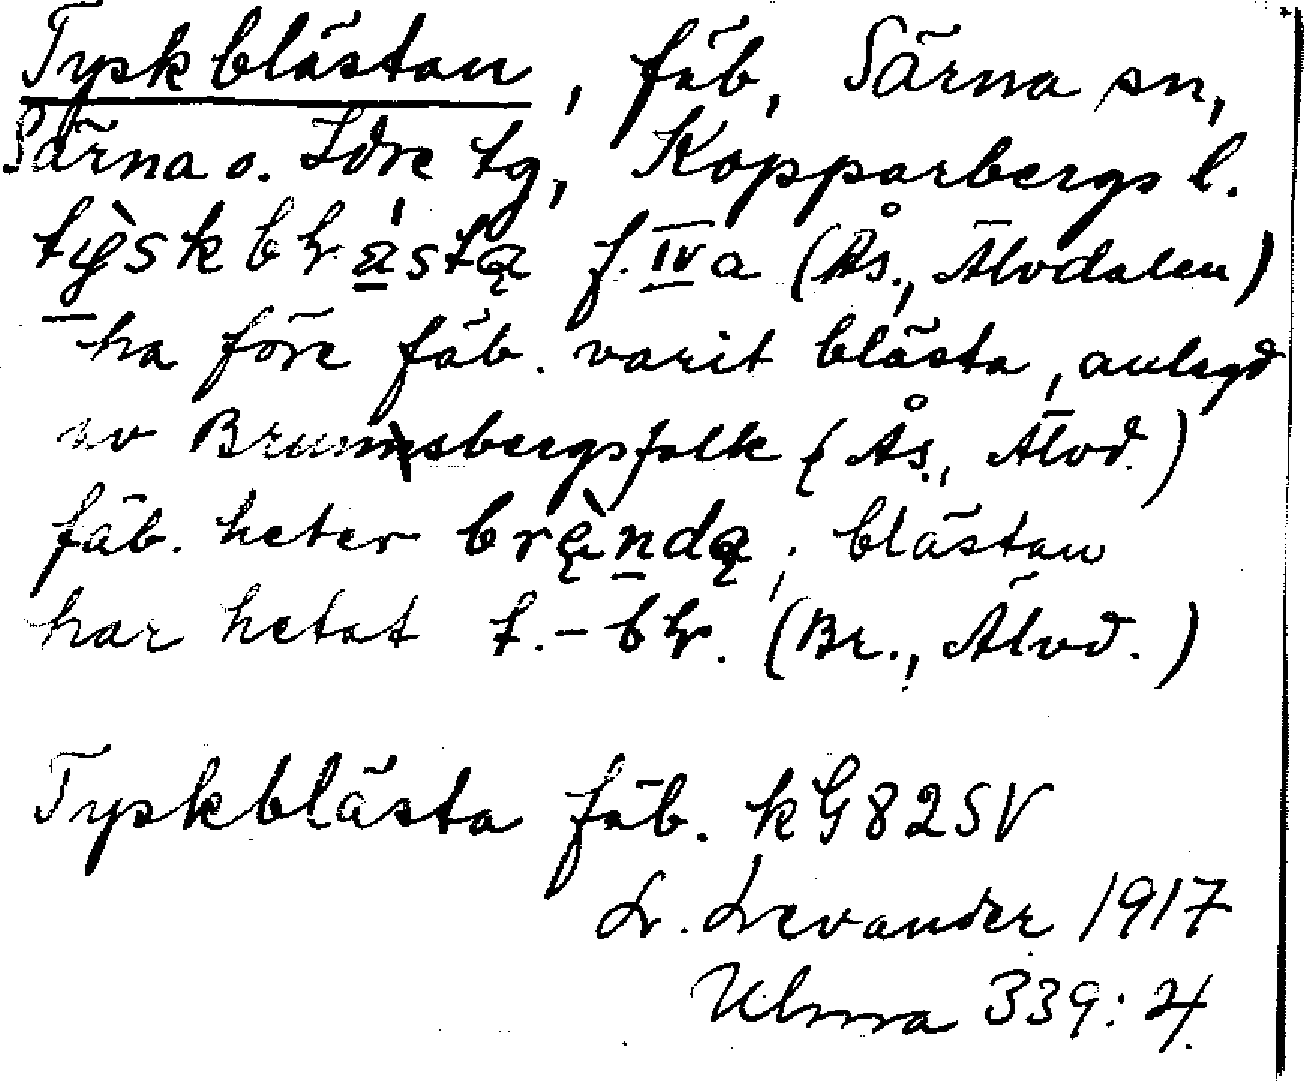 Tyskblästan, fäb, Särna sn,
Särna o. Idre tg, Kopparbergs l.
f. IV a (Ås., Älvdalen)
ha före fäb. varit blästa, anlagd
av Brunnsbergsfolk (Ås., Älvd.)
fäb. heter brę̀ndą; blästan
har hetat t.-bł. (Br., Älvd.)
Tyskblästa fäb. kG82SV
L. Levander 1917
Ulma 339:4.